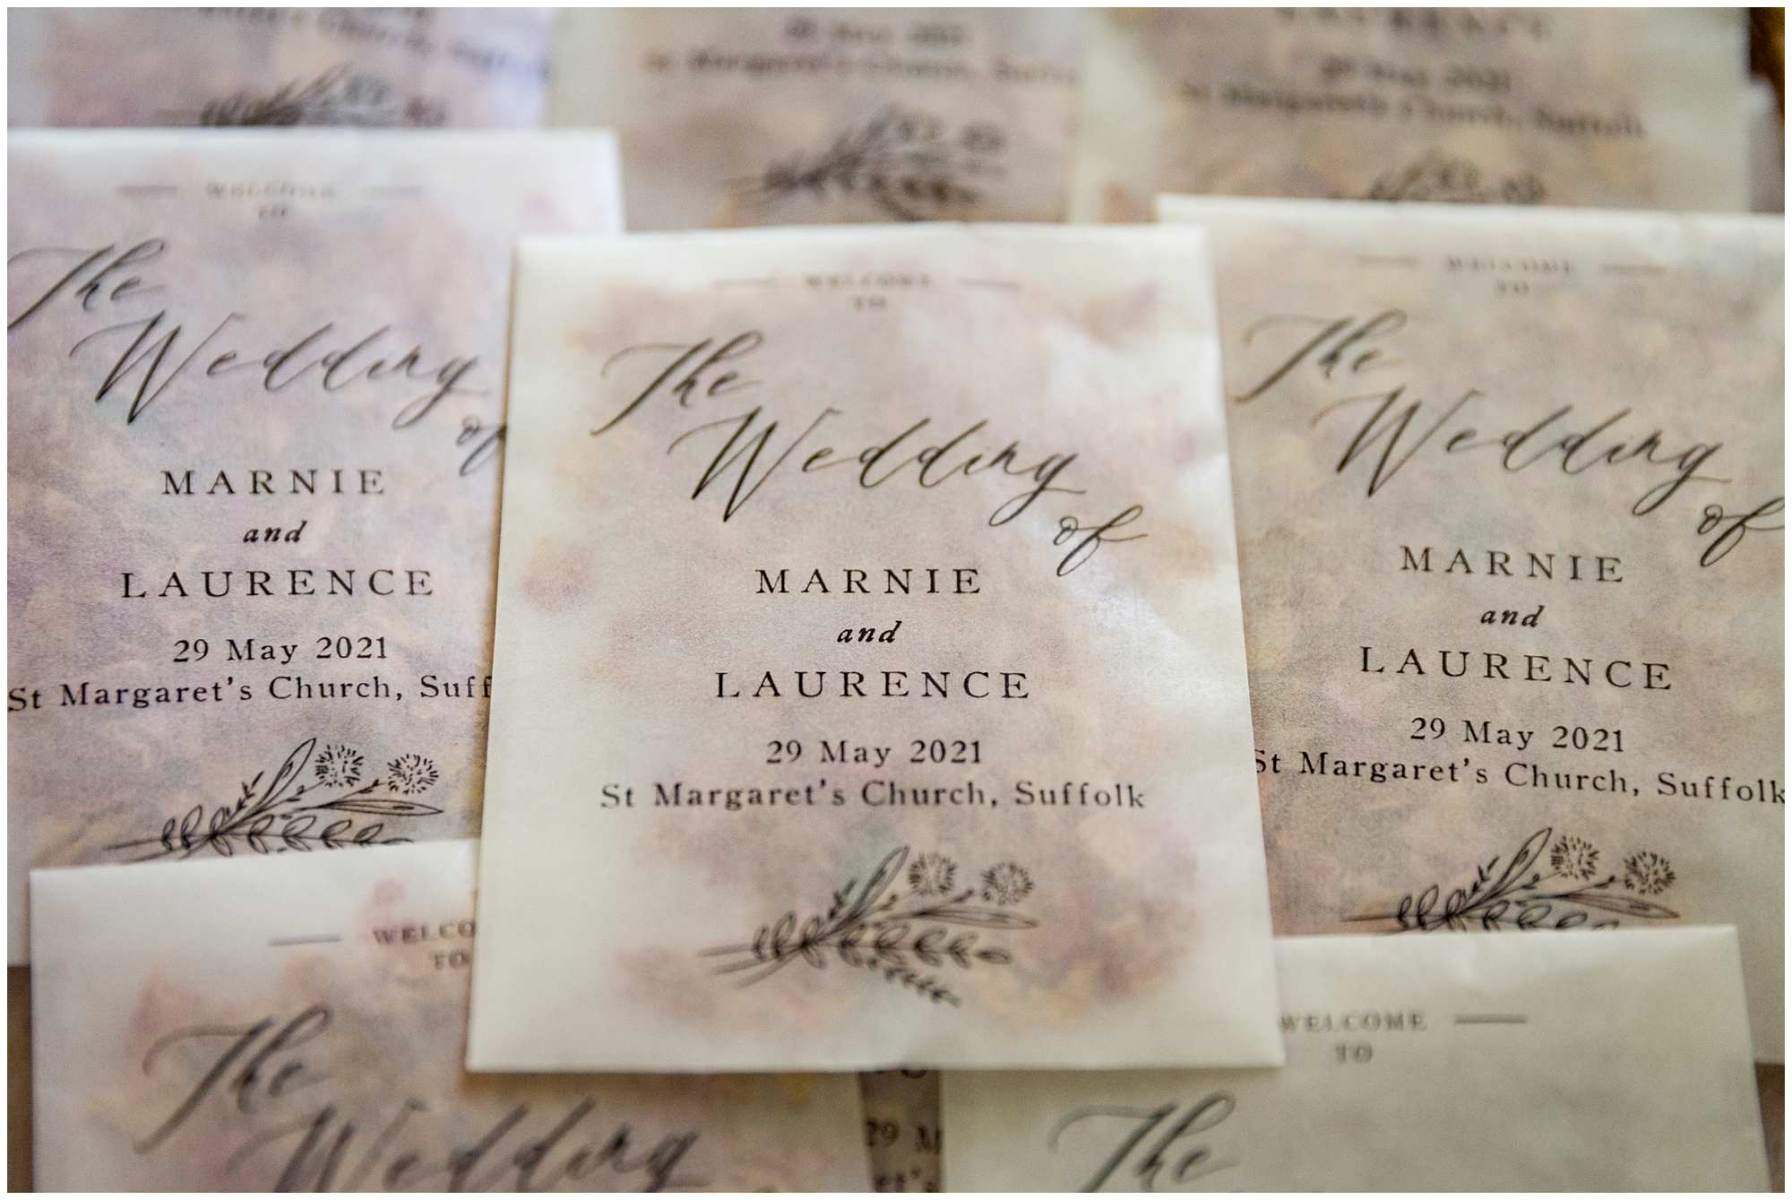 WELCOME
TO
The
Wedding
of
MARNIE
and
LAURENCE
29 May 2021
St Margaret's Church, Suffolk
WELCOME
TO
The
Wedding
of
MARNIE
and
LAURENCE
29 May 2021
St Margaret's Church, Suff
WELCOME
TO
The
Wedding
of
MARNIE
and
LAURENCE
29 May 2021
St Margaret's Church, Suffolk
WELCO
TO
The
Wedding
WELCOME
TO
The
29 M
29 May 2021
St Margaret's Church, Suffolk